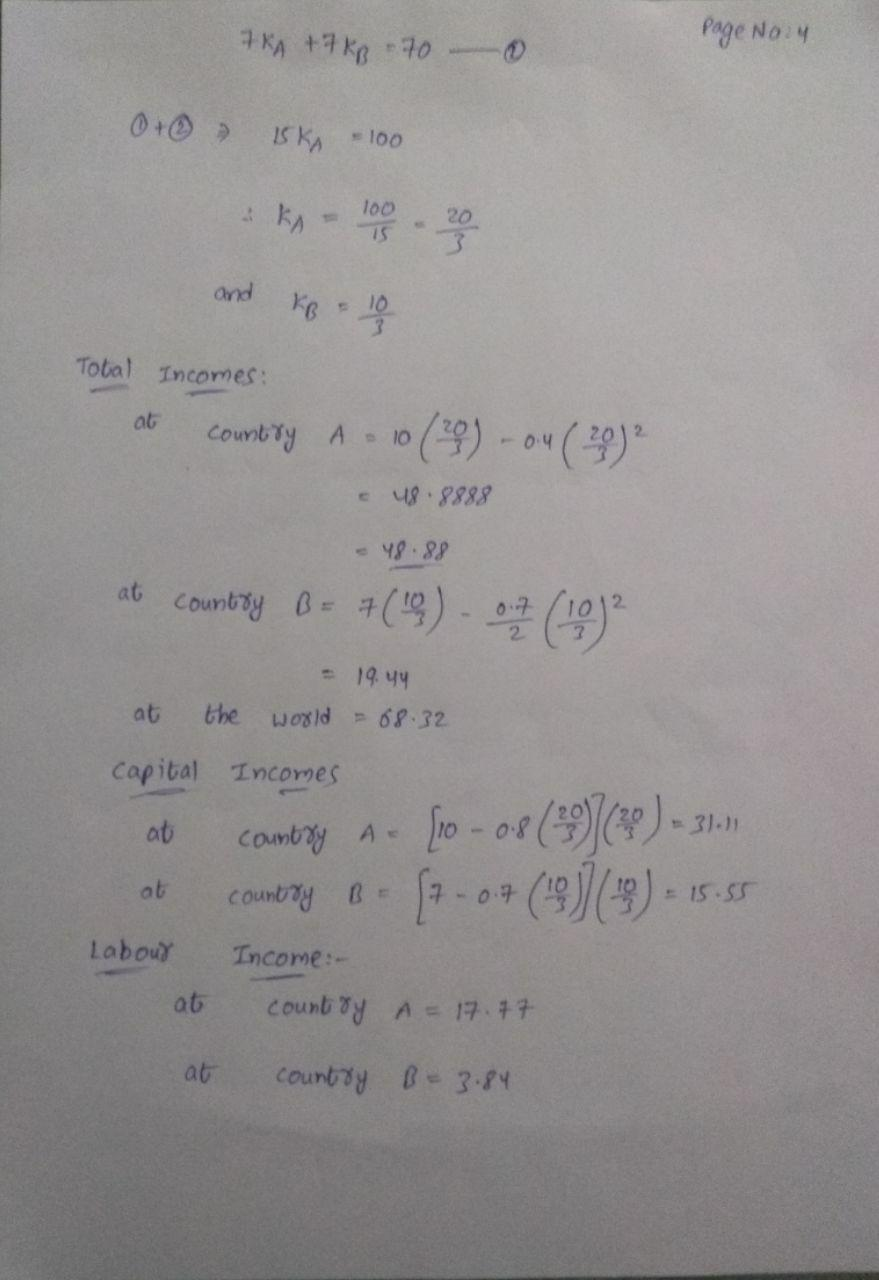 Page No: 4
7 K_A + 7 K_B = 70 —— ①
① + ② ⇒ 15 K_A = 100
∴ K_A = 100/15 = 20/3
and K_B = 10/3
Total Incomes:
at country A = 10 (20/3) - 0.4 (20/3)²
= 48.8888
= 48.88
at country B = 7 (10/3) - 0.7/2 (10/3)²
= 19.44
at the world = 68.32
Capital Incomes
at country A = [10 - 0.8 (20/3)] (20/3) = 31.11
at country B = [7 - 0.7 (10/3)] (10/3) = 15.55
Labour Income:-
at country A = 17.77
at country B = 3.84